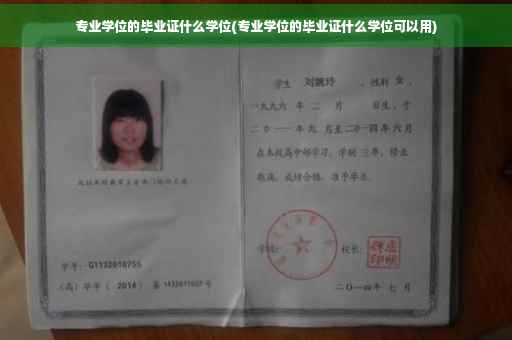 专业学位的毕业证什么学位(专业学位的毕业证什么学位可以用)
学生 刘婉玲 ，性别 女 ，
一九九六 年 二 月 日生，于
二０一一 年 九 月至 二０一四 年 六 月
在本校高中部学习，学制 三年，修业
期满，成绩合格，准予毕业。
学号： G1132010755
(高) 毕字 ( 2014 ) 第 1432011027 号
学校： 校长：
二〇一四年 七 月